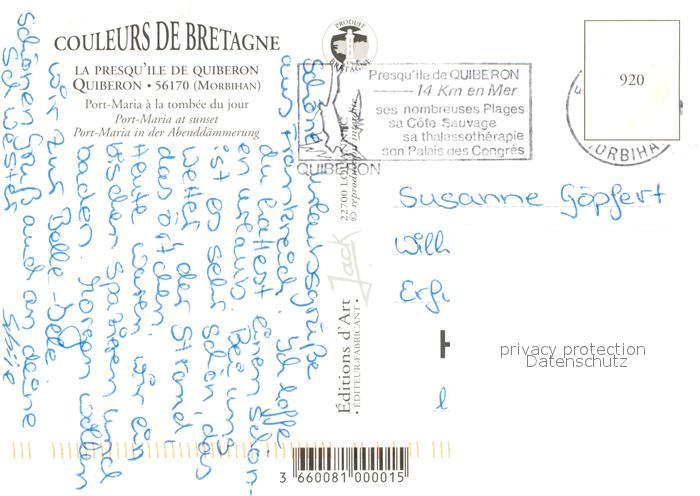 COULEURS DE BRETAGNE
LA PRESQU'ILE DE QUIBERON
QUIBERON • 56170 (MORBIHAN)
Port-Maria à la tombée du jour
Port-Maria at sunset
Port-Maria in der Abenddämmerung
PRODUIT
BRETAGNE
Presqu'ile de QUIBERON
14 Km en Mer
ses nombreuses Plages
sa Côte Sauvage
sa thalassothérapie
son Palais des Congrès
QUIBERON
ORBIHA
920
Schöne Urlaubsgrüße
aus Frankreich. Ich hoffe
du hattest einen schön-
en Urlaub. Bei uns
ist es sehr schön, das
Wetter, der Strand,
das Örtchen.
Heute waren wir ein
bischen Spazieren und
baden. Morgen wollen
wir zur Belle-Ille.
Schönen Gruß auch an deine
Schwester
Editions d'Art
Jack
• ÉDITEUR-FABRICANT •
22700
© reproduction
Susanne Göpfert
Will
Erfu
privacy protection
Datenschutz
3 660081 000015